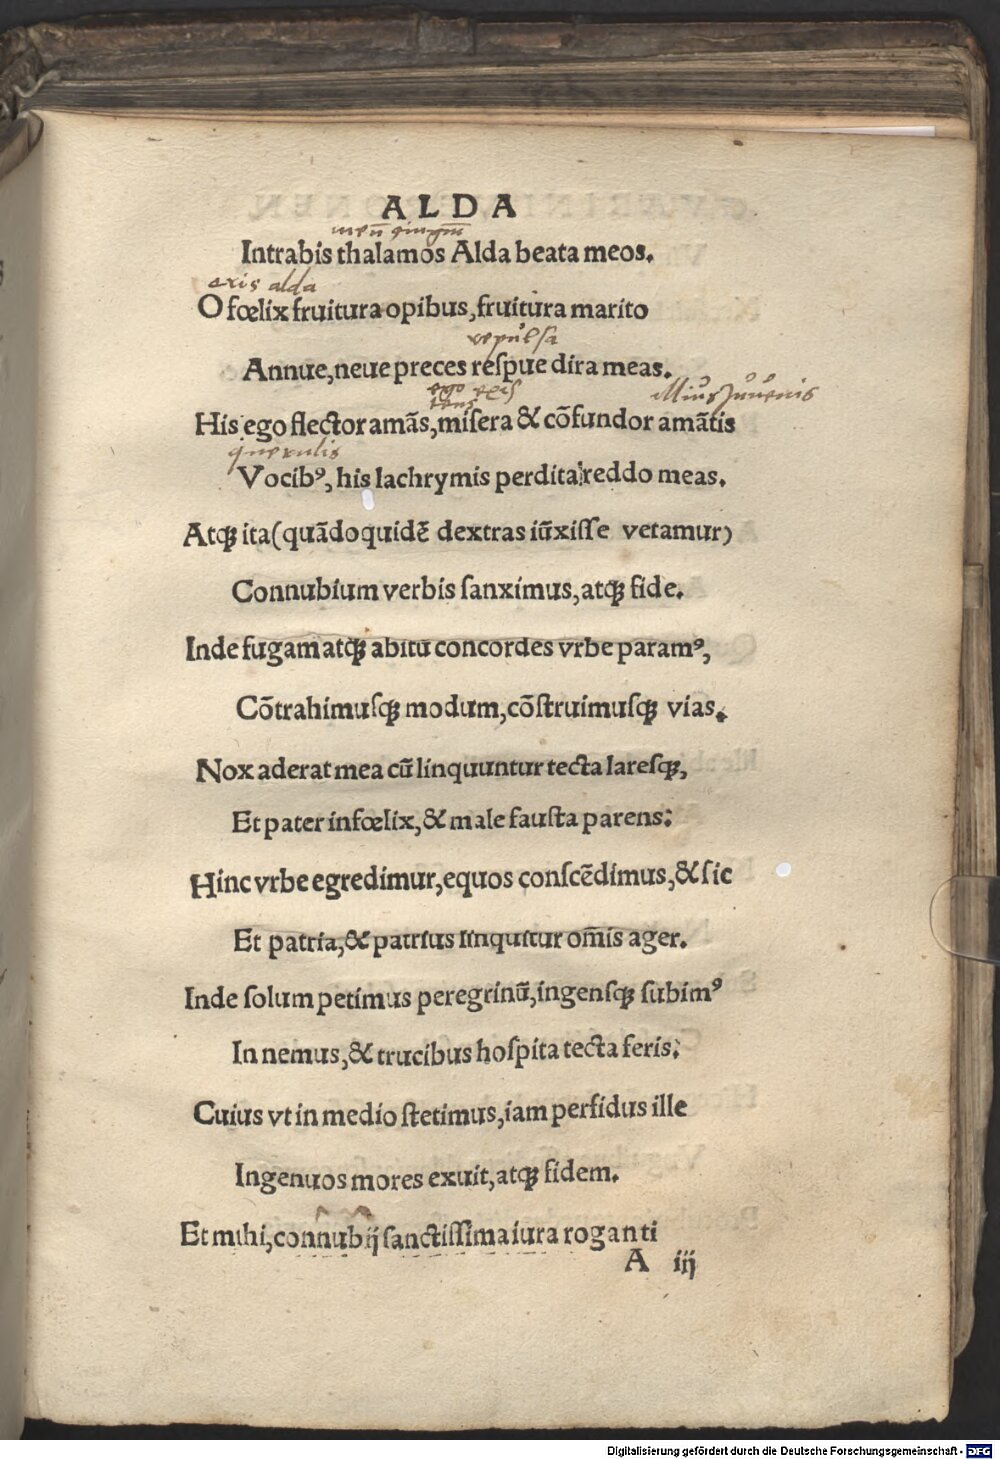 ALDA
Intrabis thalamos Alda beata meos.
eris alda
O fœlix fruitura opibus, fruitura marito
repulsa
Annue, neue preces respue dira meas.
ego exis
tens
illius Juuenis
His ego flector amãs, misera & cõfundor amãtis
querulis
Vocibꝰ, his lachrymis perdita reddo meas.
Atqꝫ ita (quãdo quidẽ dextras iũxisse vetamur)
Connubium verbis sanximus, atqꝫ fide.
Inde fugam atqꝫ abitũ concordes vrbe paramꝰ,
Cõtrahimusqꝫ modum, cõstruimusqꝫ vias.
Nox aderat mea cũ linquuntur tecta laresqꝫ,
Et pater infœlix, & male fausta parens:
Hinc vrbe egredimur, equos conscẽdimus, & sic
Et patria, & patrius linquitur om̃is ager.
Inde solum petimus peregrinũ, ingensqꝫ subimꝰ
In nemus, & trucibus hospita tecta feris:
Cuius vt in medio stetimus, iam perfidus ille
Ingenuos mores exuit, atqꝫ fidem.
Et mihi, connubij sanctissima iura roganti
A iij
Digitalisierung gefördert durch die Deutsche Forschungsgemeinschaft - DFG